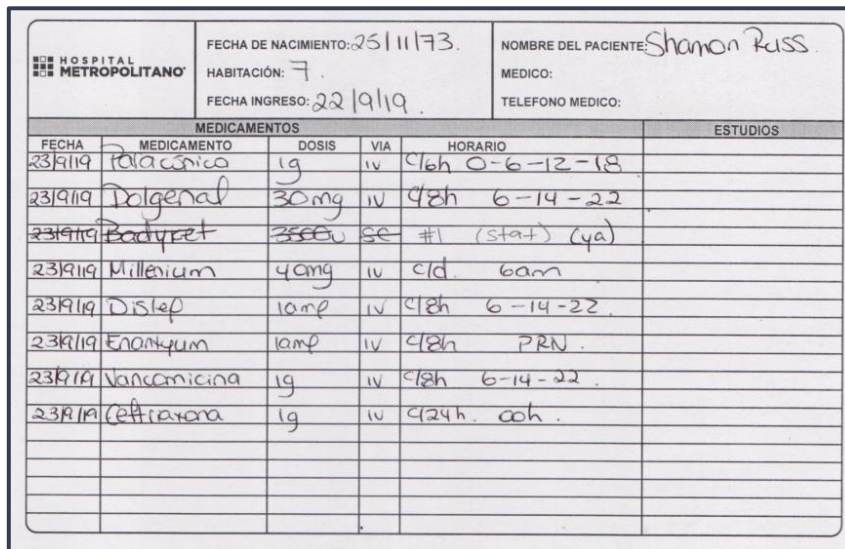 HOSPITAL METROPOLITANO
FECHA DE NACIMIENTO: 25/11/73.
HABITACIÓN: 7.
FECHA INGRESO: 22/9/19.
NOMBRE DEL PACIENTE: Shannon Russ.
MEDICO:
TELEFONO MEDICO:
MEDICAMENTOS ESTUDIOS
FECHA MEDICAMENTO DOSIS VIA HORARIO
23/9/19 1g IV C/6h 0-6-12-18
23/9/19 Dolgenal 30mg IV C/8h 6-14-22
23/9/19 3500u SC #1 (stat) (ya)
23/9/19 Millenium 40mg IV c/d. 6am
23/9/19 Dislep 1amp IV C/8h 6-14-22.
23/9/19 Enantyum 1amp IV C/8h PRN.
23/9/19 Vancomicina 1g IV C/8h 6-14-22.
23/9/19 Ceftriaxona 1g IV C/24h. 00h.